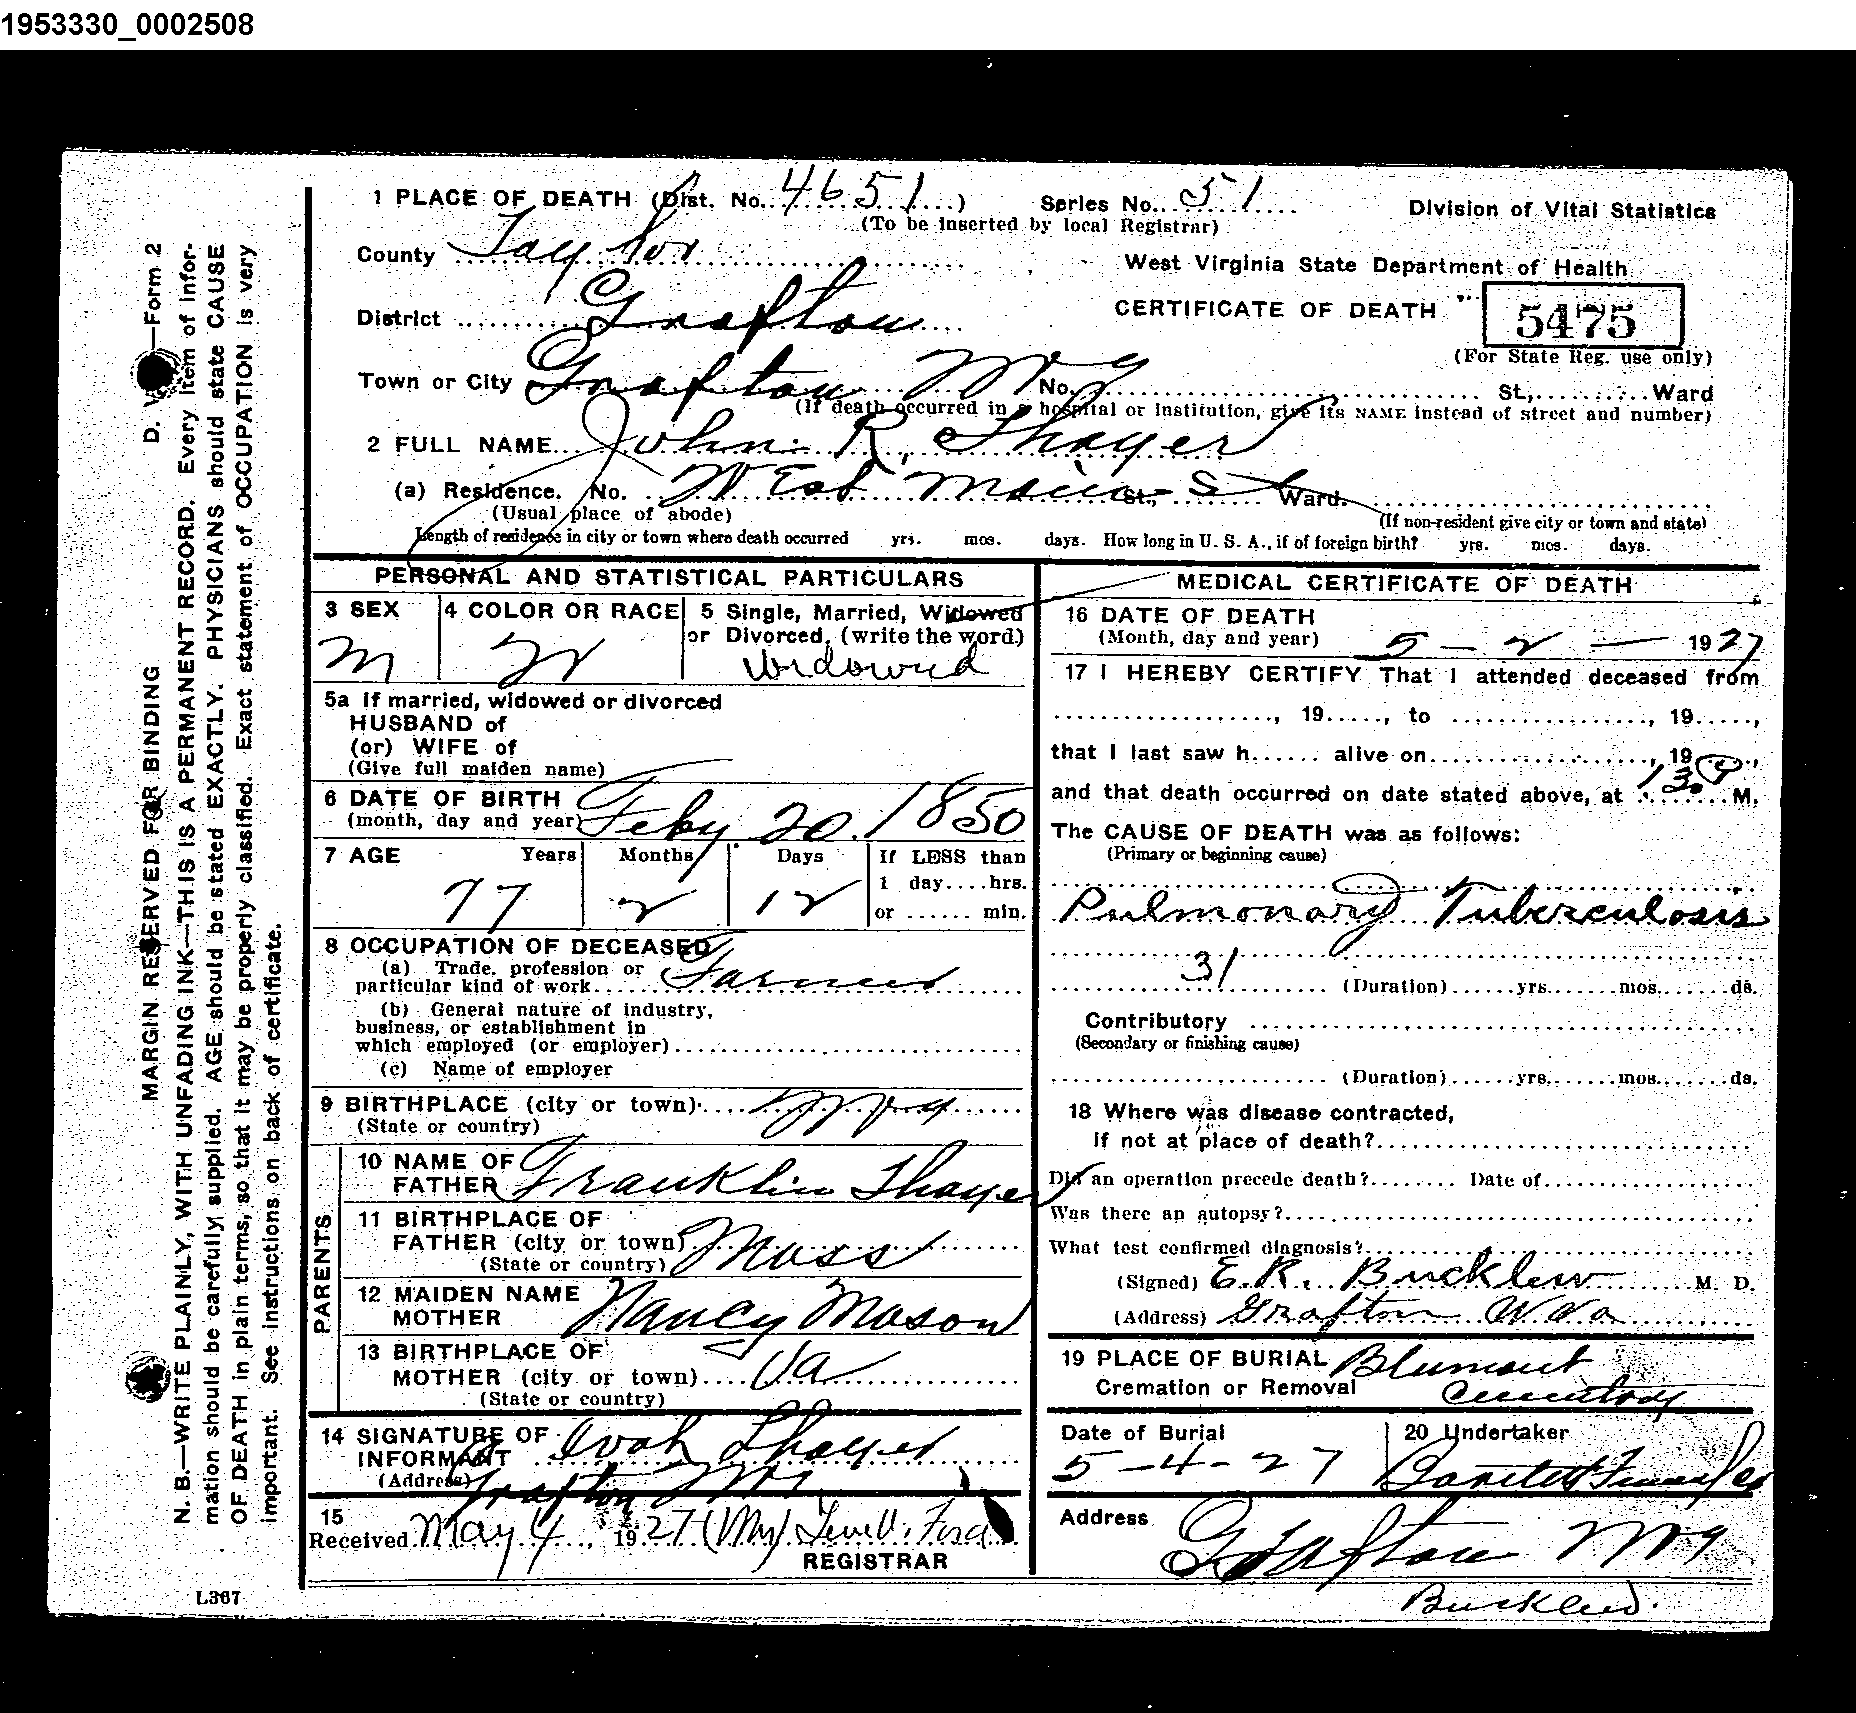 1953330_0002508
1 PLACE OF DEATH (Dist. No. 4651) Series No. 51 Division of Vital Statistics
(To be inserted by local Registrar)
County Taylor
West Virginia State Department of Health
District Grafton
CERTIFICATE OF DEATH 5475
(For State Reg. use only)
Town or City Grafton W Va No. St, Ward
(If death occurred in a hospital or institution, give its NAME instead of street and number)
2 FULL NAME John R. Thayer
(a) Residence. No. West Main St., Ward.
(Usual place of abode) (If non-resident give city or town and state)
Length of residence in city or town where death occurred yrs. mos. days. How long in U. S. A., if of foreign birth? yrs. mos. days.
PERSONAL AND STATISTICAL PARTICULARS
3 SEX
M
4 COLOR OR RACE
W
5 Single, Married, Widowed
or Divorced, (write the word)
Widowed
5a If married, widowed or divorced
HUSBAND of
(or) WIFE of
(Give full maiden name)
6 DATE OF BIRTH
(month, day and year) Feby. 20. 1850
7 AGE Years Months Days If LESS than
1 day....hrs.
77 2 12 or ...... min.
8 OCCUPATION OF DECEASED
(a) Trade, profession or
particular kind of work Farmer
(b) General nature of industry,
business, or establishment in
which employed (or employer)
(c) Name of employer
9 BIRTHPLACE (city or town) W Va
(State or country)
PARENTS
10 NAME OF
FATHER Franklin Thayer
11 BIRTHPLACE OF
FATHER (city or town) Mass
(State or country)
12 MAIDEN NAME
MOTHER Nancy Mason
13 BIRTHPLACE OF
MOTHER (city or town) Va
(State or country)
14 SIGNATURE OF
INFORMANT Ivah Thayer
(Address) Grafton W Va
15
Received May 4 1927 (My) Ford
REGISTRAR
MEDICAL CERTIFICATE OF DEATH
16 DATE OF DEATH
(Month, day and year) 5 - 2 - 1927
17 I HEREBY CERTIFY That I attended deceased from
, 19....., to , 19.....,
that I last saw h...... alive on , 19 ,
and that death occurred on date stated above, at 130 P M.
The CAUSE OF DEATH was as follows:
(Primary or beginning cause)
Pulmonary Tuberculosis
31
(Duration) yrs. mos. ds.
Contributory
(Secondary or finishing cause)
(Duration) yrs. mos. ds.
18 Where was disease contracted,
if not at place of death?
Did an operation precede death? Date of
Was there an autopsy?
What test confirmed diagnosis?
(Signed) E. R. Bucklew M. D.
(Address) Grafton W Va
19 PLACE OF BURIAL Blumont
Cremation or Removal Cemetery
Date of Burial 20 Undertaker
5-4-27
Address
Grafton W Va
D. V. —Form 2
MARGIN RESERVED FOR BINDING
N. B.—WRITE PLAINLY, WITH UNFADING INK—THIS IS A PERMANENT RECORD. Every item of infor-
mation should be carefully supplied. AGE should be stated EXACTLY. PHYSICIANS should state CAUSE
OF DEATH in plain terms, so that it may be properly classified. Exact statement of OCCUPATION is very
important. See instructions on back of certificate.
L367